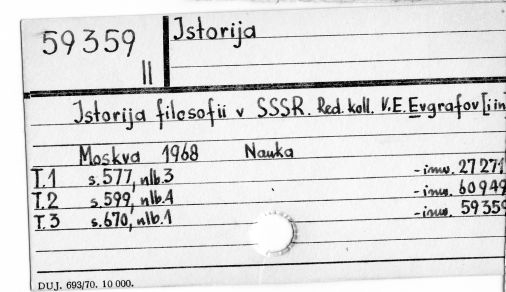 59359 Istorija
II
Istorija filosofii v SSSR. Red. koll. V.E. Evgrafov [i in
Moskva 1968 Nauka
T.1 s.577, nlb.3 - inw. 27271
T.2 s.599, nlb.4 - inw. 60949
T.3 s.670, nlb.1 - inw. 59359
DUJ. 693/70. 10 000.